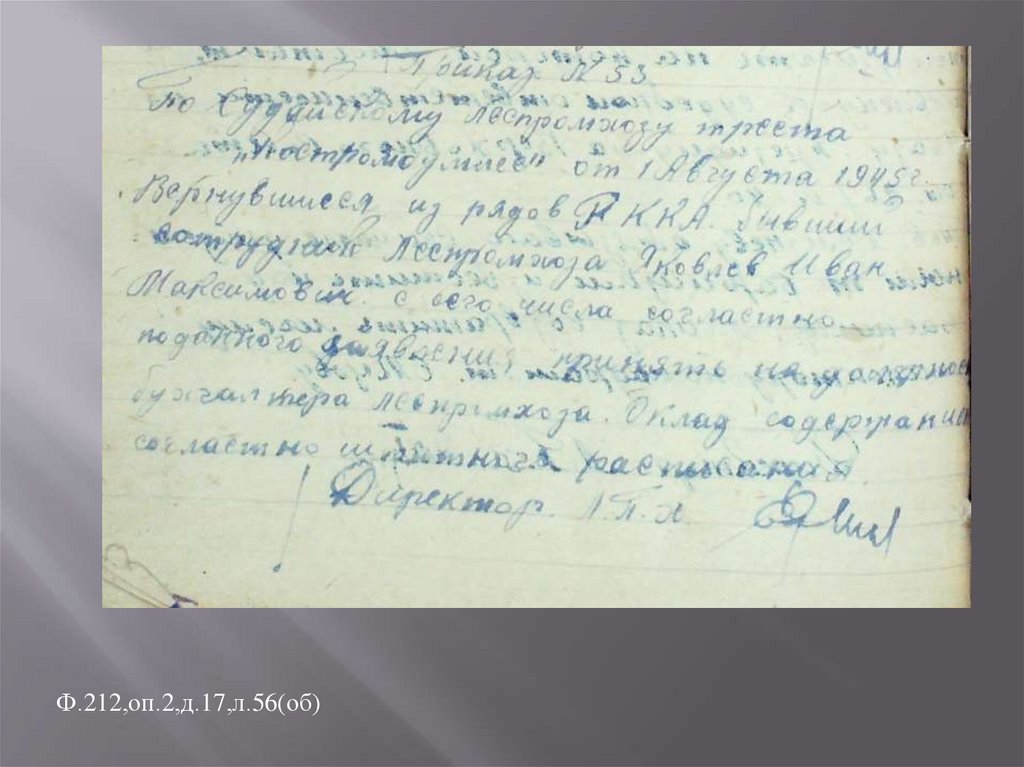 Приказ N 53
по Судайскому леспромхозу треста
"Костромоумлес" от 1 Августа 1945 г.
Вернувшиеся из рядов РККА. бывший
сотрудник Леспромхоза Яковлев Иван
Максимович с сего числа согластно
поданного заявления принять на должнос
бухгалтера леспромхоза. Оклад содержания
согластно штатного расписания
Директор Л.П.Х.
Ф.212,оп.2,д.17,л.56(об)